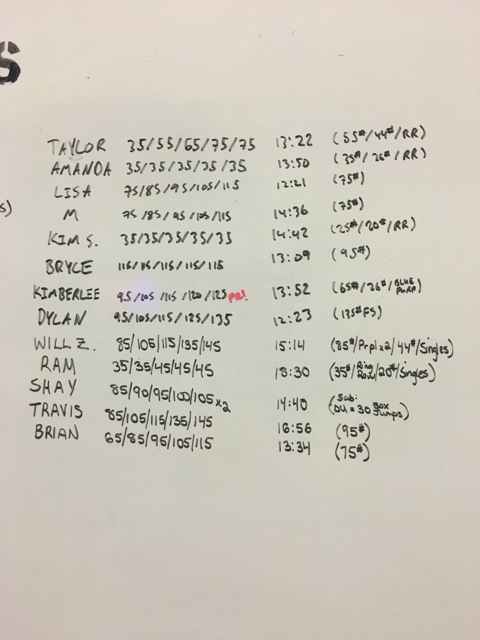 S
s)
TAYLOR 35/55/65/75/75 13:22 (55#/44#/RR)
AMANDA 35/35/35/35/35 13:50 (35#/26#/RR)
LISA 75/85/95/105/115 12:21 (75#)
M 75/85/95/105/115 14:36 (75#)
KIM S. 35/35/35/35/35 14:42 (25#/20#/RR)
BRYCE 115/115/115/115/115 13:09 (95#)
KIMBERLEE 95/105/115/120/125 PR! 13:52 (65#/26#/BLUE PURP)
DYLAN 95/105/115/125/135 12:23 (135# FS)
WILL Z. 85/105/115/135/145 15:14 (85#/Prplx2/44#/Singles)
RAM 35/35/45/45/45 18:30 (35#/Ring Row/20#/Singles)
SHAY 85/90/95/100/105x2 14:40 (Sub: DU = 30 Box Jumps)
TRAVIS 85/105/115/135/145 16:56 (95#)
BRIAN 65/85/95/105/115 13:34 (75#)